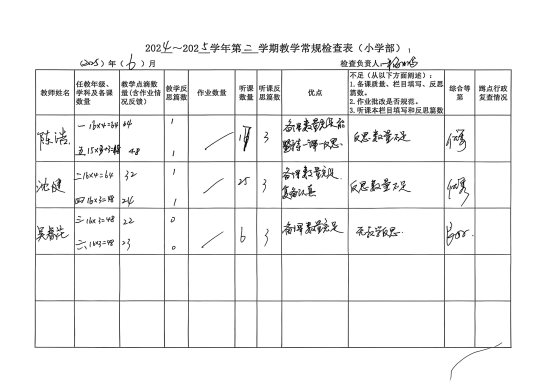 2024～2025学年第二学期教学常规检查表（小学部）
（2025）年（6）月 检查负责人：
教师姓名 任教年级、学科及备课数量 教学点滴数量(含作业情况反馈) 教学反思篇数 作业数量 听课数量 听课反思篇数 优点 不足（从以下方面阐述）：1.备课质量、栏目填写、反思篇数。2.作业批改是否规范。3.听课本栏目填写和反思篇数 综合等第 蹲点行政复查情况
陈浩 一16×4=64 64 1 3 备课数量充足 反思数量不足 优秀
一课一反思
48 1
沈健 二16×4=64 32 1 25 3 备课数量充足 反思数量不足 优秀
四16×3=48 24 1
三16×3=48 22 0 6 3 备课数量充足 无教学反思
六16×3=48 23 0